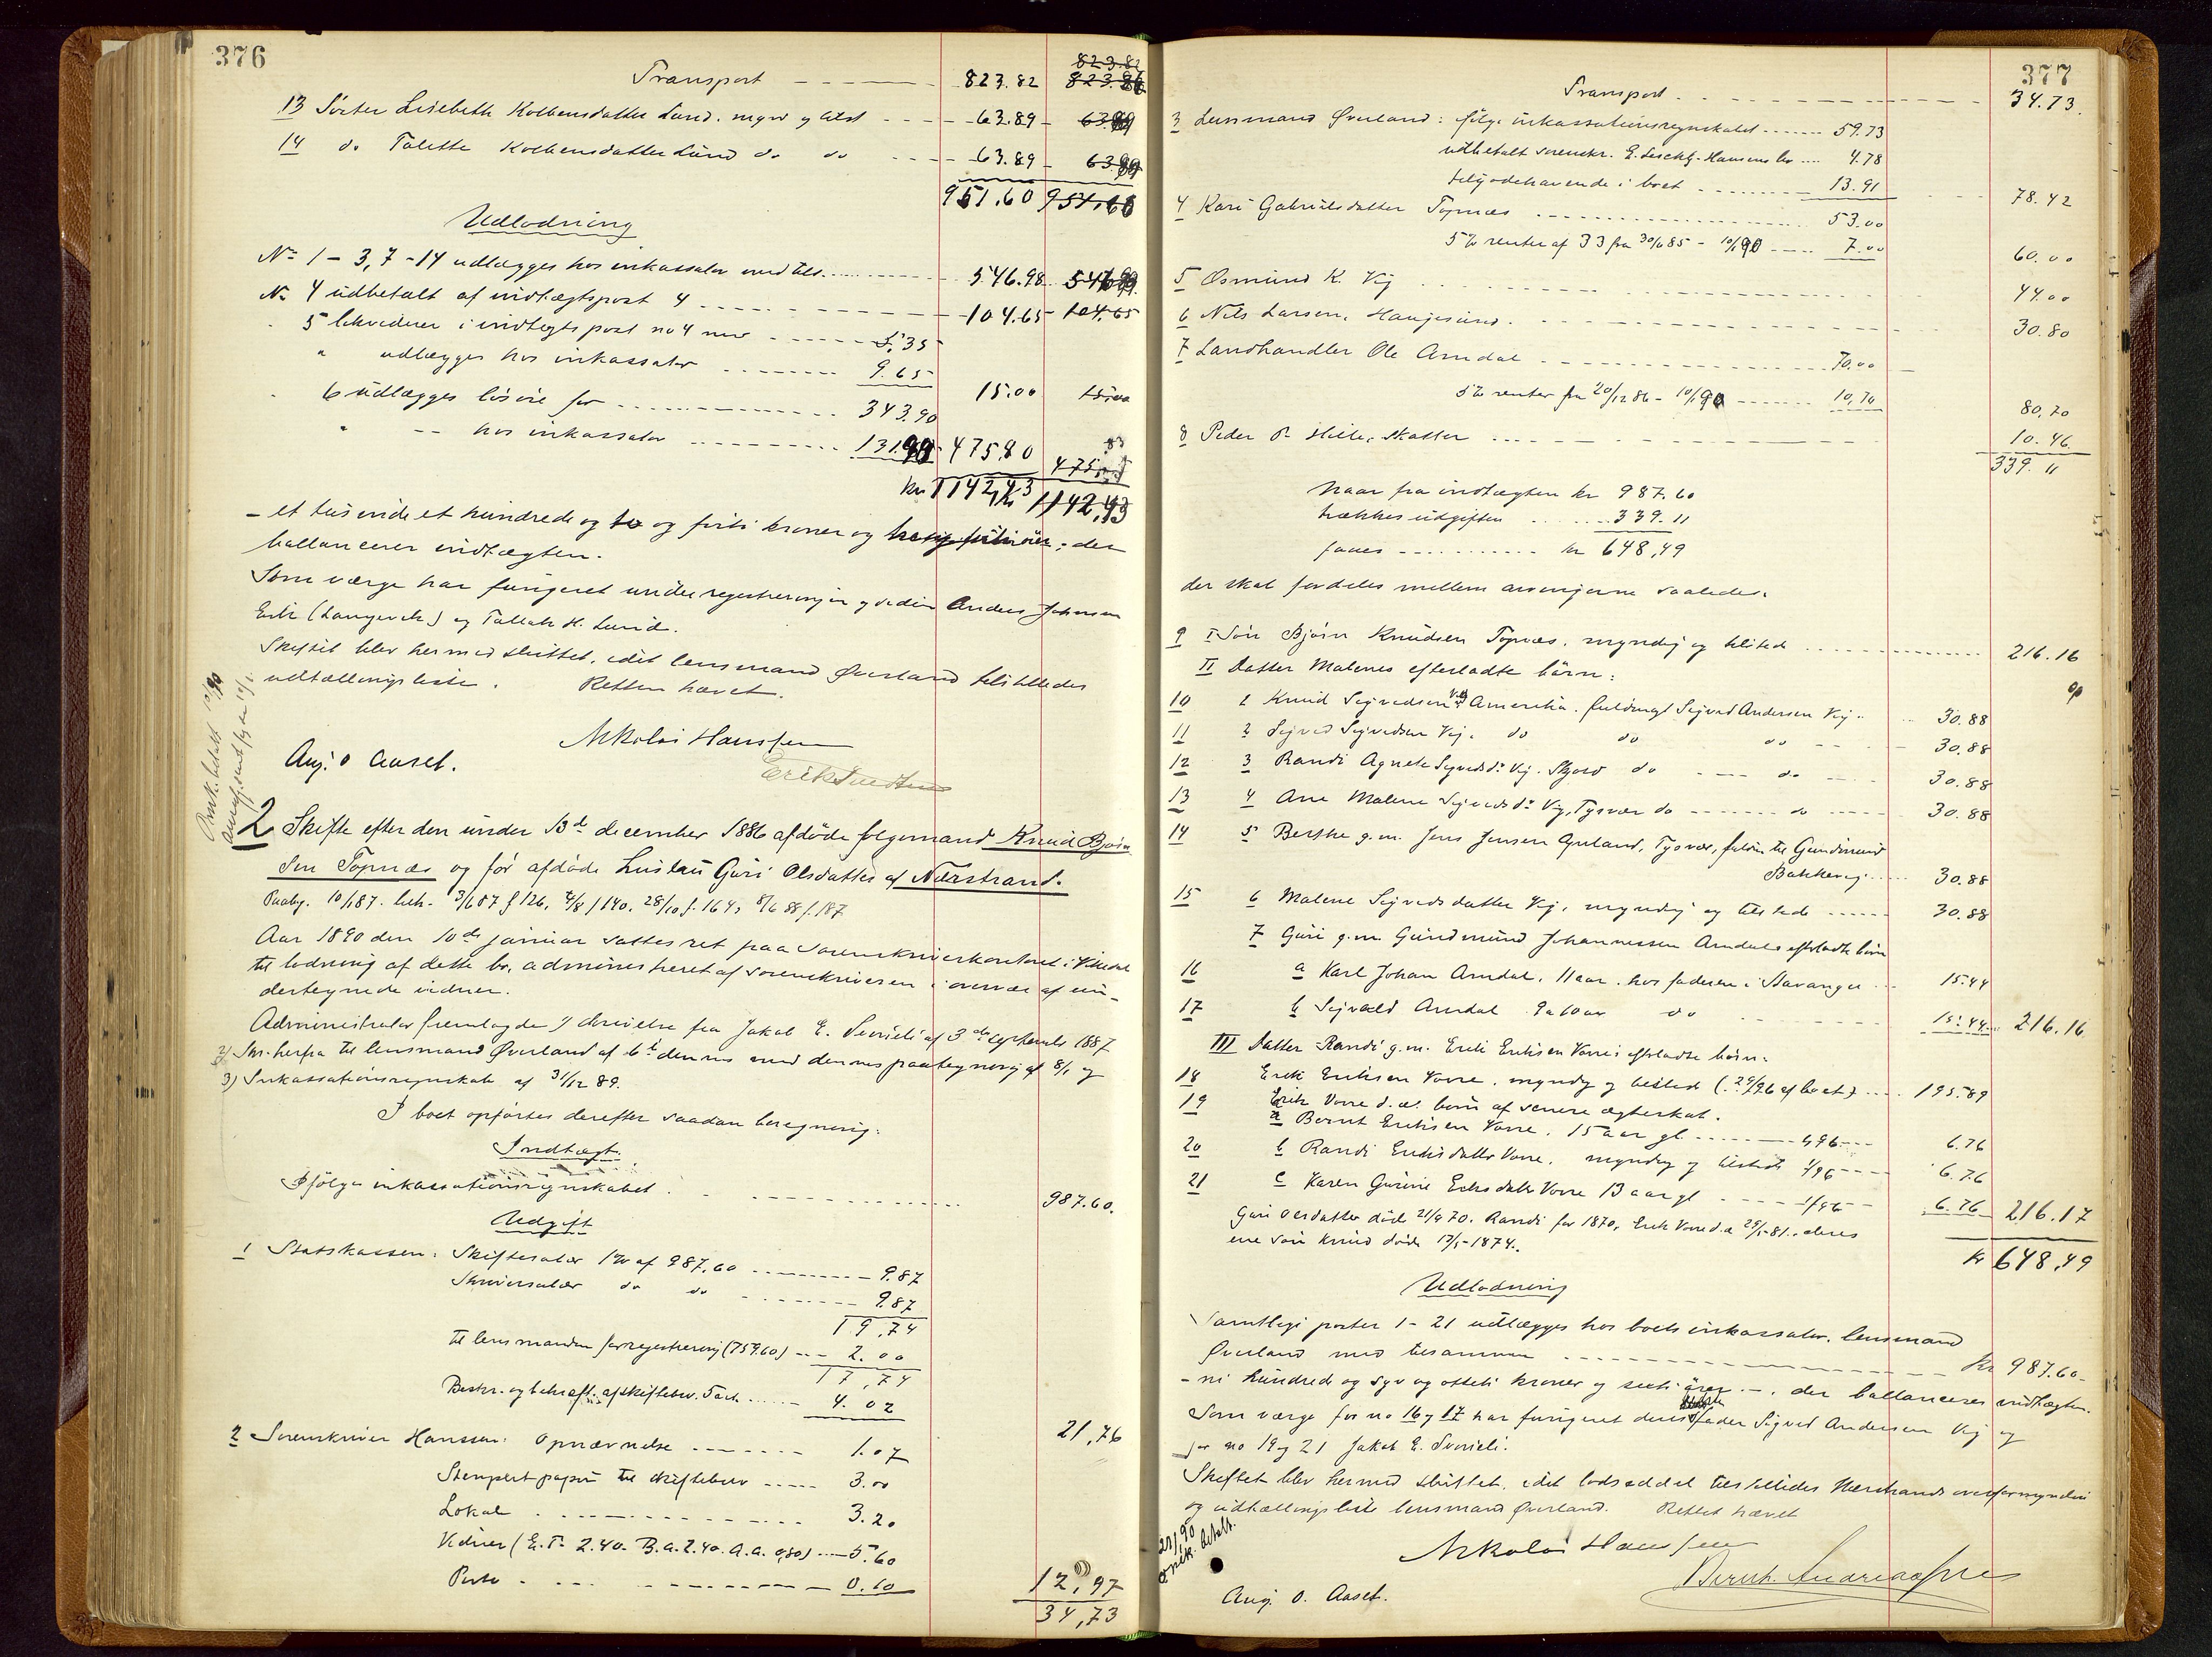 376
Transport - - - - 823.82 823.82 823.86
13 Søster Lisebeth Kolbensdatter Lund. mynd og tilst - - - 63.89 - 63.89
14 do Talette Kolbensdatter Lund do do - - - 63.89 - 63.89
951.60 951.60
Udlodning
No 1 - 3, 7 - 14 udlægges hos inkassator med tils. - - - 546.98
No 4 udbetalt af indtægtspost 4 - - - 104.65 104.65
5 likviderer i indtægts post no 4 med - - - 5.35
" udlægges hos inkassator - - - 9.65
15.00 15.00
6 udlægges løsøre for - - - 343.90
" -- hos inkassator - - - 131.90 475.80
kr 1142,43 kr 1142,43
- et tusinde et hundrede og to og firti kroner og - der
ballancerer indtægten.
Som værge har fungeret under registreringen og siden Anders Johnsen
Eide (Langevik) og Tallak H. Lund.
Skiftet blev hermed sluttet, idet lensmand Øverland tilstilledes
udtællingsliste. Retten hævet.
Nikolai Hanssen
Aug. O Aaset.
2 Skifte efter den under 13de december 1886 afdøde følgemand Knud Bjørn
sen Topnæs og før afdøde hustru Guri Olsdatter af Nærstrand.
Paabg. 10/1 87. beh. 3/6 87 f 126, 4/8 f 140. 28/10 f. 164, 8/6 88 f. 187
Aar 1890 den 10de januar sattes ret paa sorenskriverkontoret i Vikedal
til lodning af dette bo, administreret af sorenskriveren i overvær af un-
dertegnede vidner.
Administrator fremlagde 1) skrivelse fra Jakob E. Svinali af 3de september 1887
2) Skr. herfra til lensmand Øverland af 6te dennes med dennes paategning af 8/1 og
3) Inkassationsregnskab af 31/12 89.
I boet opførtes derefter saadan beregning:
Indtægt.
Ifølge inkassationsregnskabet. - - - 987.60.
Udgift
1 Statskassen: Skiftesalær 1% af 987.60 - - - 9.87
Skriversalær do do - - - 9.87
19,74
til lensmanden for registrering (759.60) - - - 2.00
17,74
Beskr. og bekræft. af skiftebrev. 5 ark - - - 4.02
21,76
2 Sorenskriver Hanssen: Opnævnelse - - - 1.07
Stemplet papir til skiftebrev - - - 3.00
Lokale - - - 3.20
Vidner (E.T. 2.40. B.a. 2.40. A.a. 0,80) - - - 5.60
Porto - - - 0.10
12,97
34,73
377
Transport - - - 34.73.
3 Lensmand Øverland: ifølge inkassationsregnskabet - - - 59.73
udbetalt sorenskr. - Hansens bo - - - 4.78
tilgodehavende i boet - - - 13.91
78.42
4 Kari Gabrielsdatter Topnæs - - - 53.00
5% renter af 33 fra 30/6 85 - 10/1 90 - - - 7.00
60.00
5 Osmund K. Vig - - - 44.00
6 Nils Larsen, Haugesund. - - - 30.80
7 Landhandler Ole Arndal - - - 70.00
5% renter fra 20/12 86 - 10/1 90 - - - 10,70
80,70
8 Peder P. Hille, skatter - - - 10.46
339.11
Naar fra indtægten kr 987.60
trækkes udgiften - - - 339.11
faaes - - - kr 648,49
der skal fordeles mellem arvingerne saaledes:
9 I Søn Bjørn Knudsen Topnæs, myndig og tilstede - - - 216.16
II Datter Malenes efterladte børn:
10 1 Knud Sigvedsen Vig Amerika. fuldmægt Sigved Andersen Vig - - 30.88
11 2 Sigved Sigvedsen Vig. do do do - - 30.88
12 3 Randi Agnete Sigvedsdr Vig. Skjold do - - - do - - - 30.88
13 4 Ane Malene Sigvedsdr Vig, Tysvær do - - - do - - - 30.88
14 5 Berthe g.m. Jens Jensen , Tysvær, fuldm til Gundmund
Bakkevig - - - 30.88
15 6 Malene Sigvedsdatter Vig, myndig og tilstede - - - 30.88
7 Guri g.m. Gundmund Johannessen Arndals efterladte børn
16 a Karl Johan Arndal, 11 aar. hos faderen i Stavanger - - 15.44
17 b Sigvald Arndal 9 a 10 aar do - - - 15.44 - 216.16
III Datter Randi g.m. Erik Eriksen Vorre's efterladte børn:
18 Erik Eriksen Vorre, myndig og tilsted (29/96 af boet) - - - 195.89
19 Erik Vorre d.æ. børn af senere ægteskab.
a Bernt Eriksen Vorre, 15 aar gl - - - 1/96 - - 6.76
20 b Randi Eriksdatter Vorre, myndig og tilstede 1/96 - - - 6.76
21 c Karen Gurine Eriksdatter Vorre 13 aar gl - - - 1/96 - - 6.76 216.17
Guri Olsdatter døde 21/9 70. Randi før 1870. Erik Vorre d.æ 29/5-81. deres
ene søn Knud døde 13/5-1874.
kr 648,49
Udlodning
Samtlige poster 1 - 21 udlægges hos boets inkassator, lensmand
Øverland med tilsammen - - - kr 987.60 -
- ni hundrede og syv og otteti kroner og seksti ører -, der ballancerer indtægten.
Som værge for no 16 og 17 har fungeret deres fader Sigved Andersen Vig og
for no 19 og 21 Jakob E. Svinali.
Skiftet blev hermed sluttet, idet lodseddel tilstilledes Nærstrands overformynderi
og udtællingsliste lensmand Øverland. Rettet hævet
23/1 90
omk. betalt.
Nikolai Hanssen
Aug. O. Aaset.